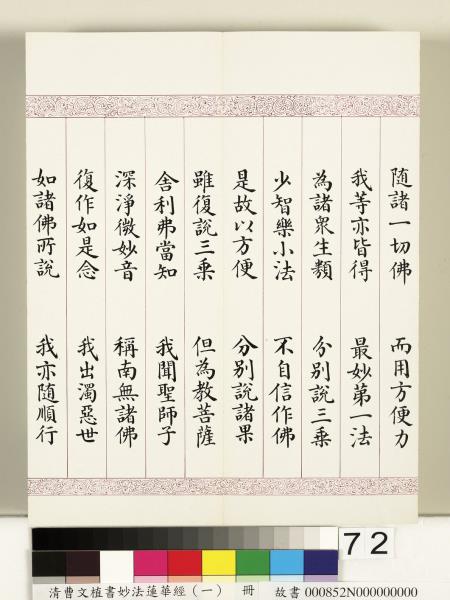 隨諸一切佛 而用方便力
我等亦皆得 最妙第一法
為諸眾生類 分別說三乘
少智樂小法 不自信作佛
是故以方便 分別說諸果
雖復說三乘 但為教菩薩
舍利弗當知 我聞聖師子
深淨微妙音 稱南無諸佛
復作如是念 我出濁惡世
如諸佛所說 我亦隨順行
72
清曹文植書妙法蓮華經(一) 冊 故書 000852N000000000